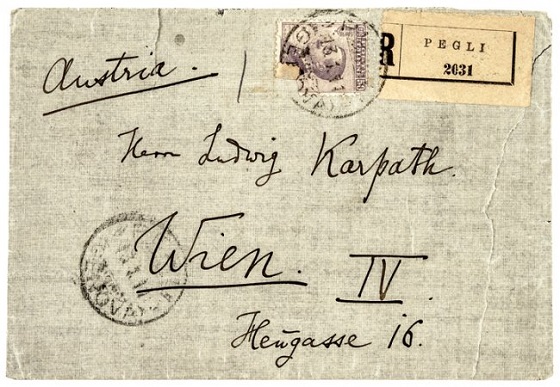 Austria.
R PEGLI
2631
Herrn Ludwig Karpath.
Wien. IV.
Heugasse 16.